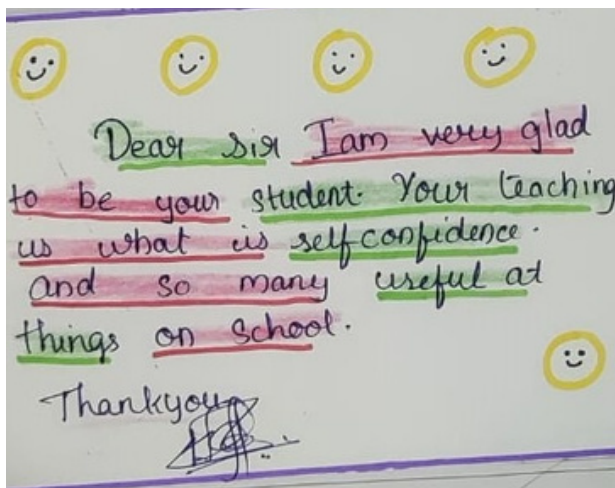 Dear sir Iam very glad
to be your student. Your teaching
us what is selfconfidence.
and so many useful at
things on school.
Thankyou